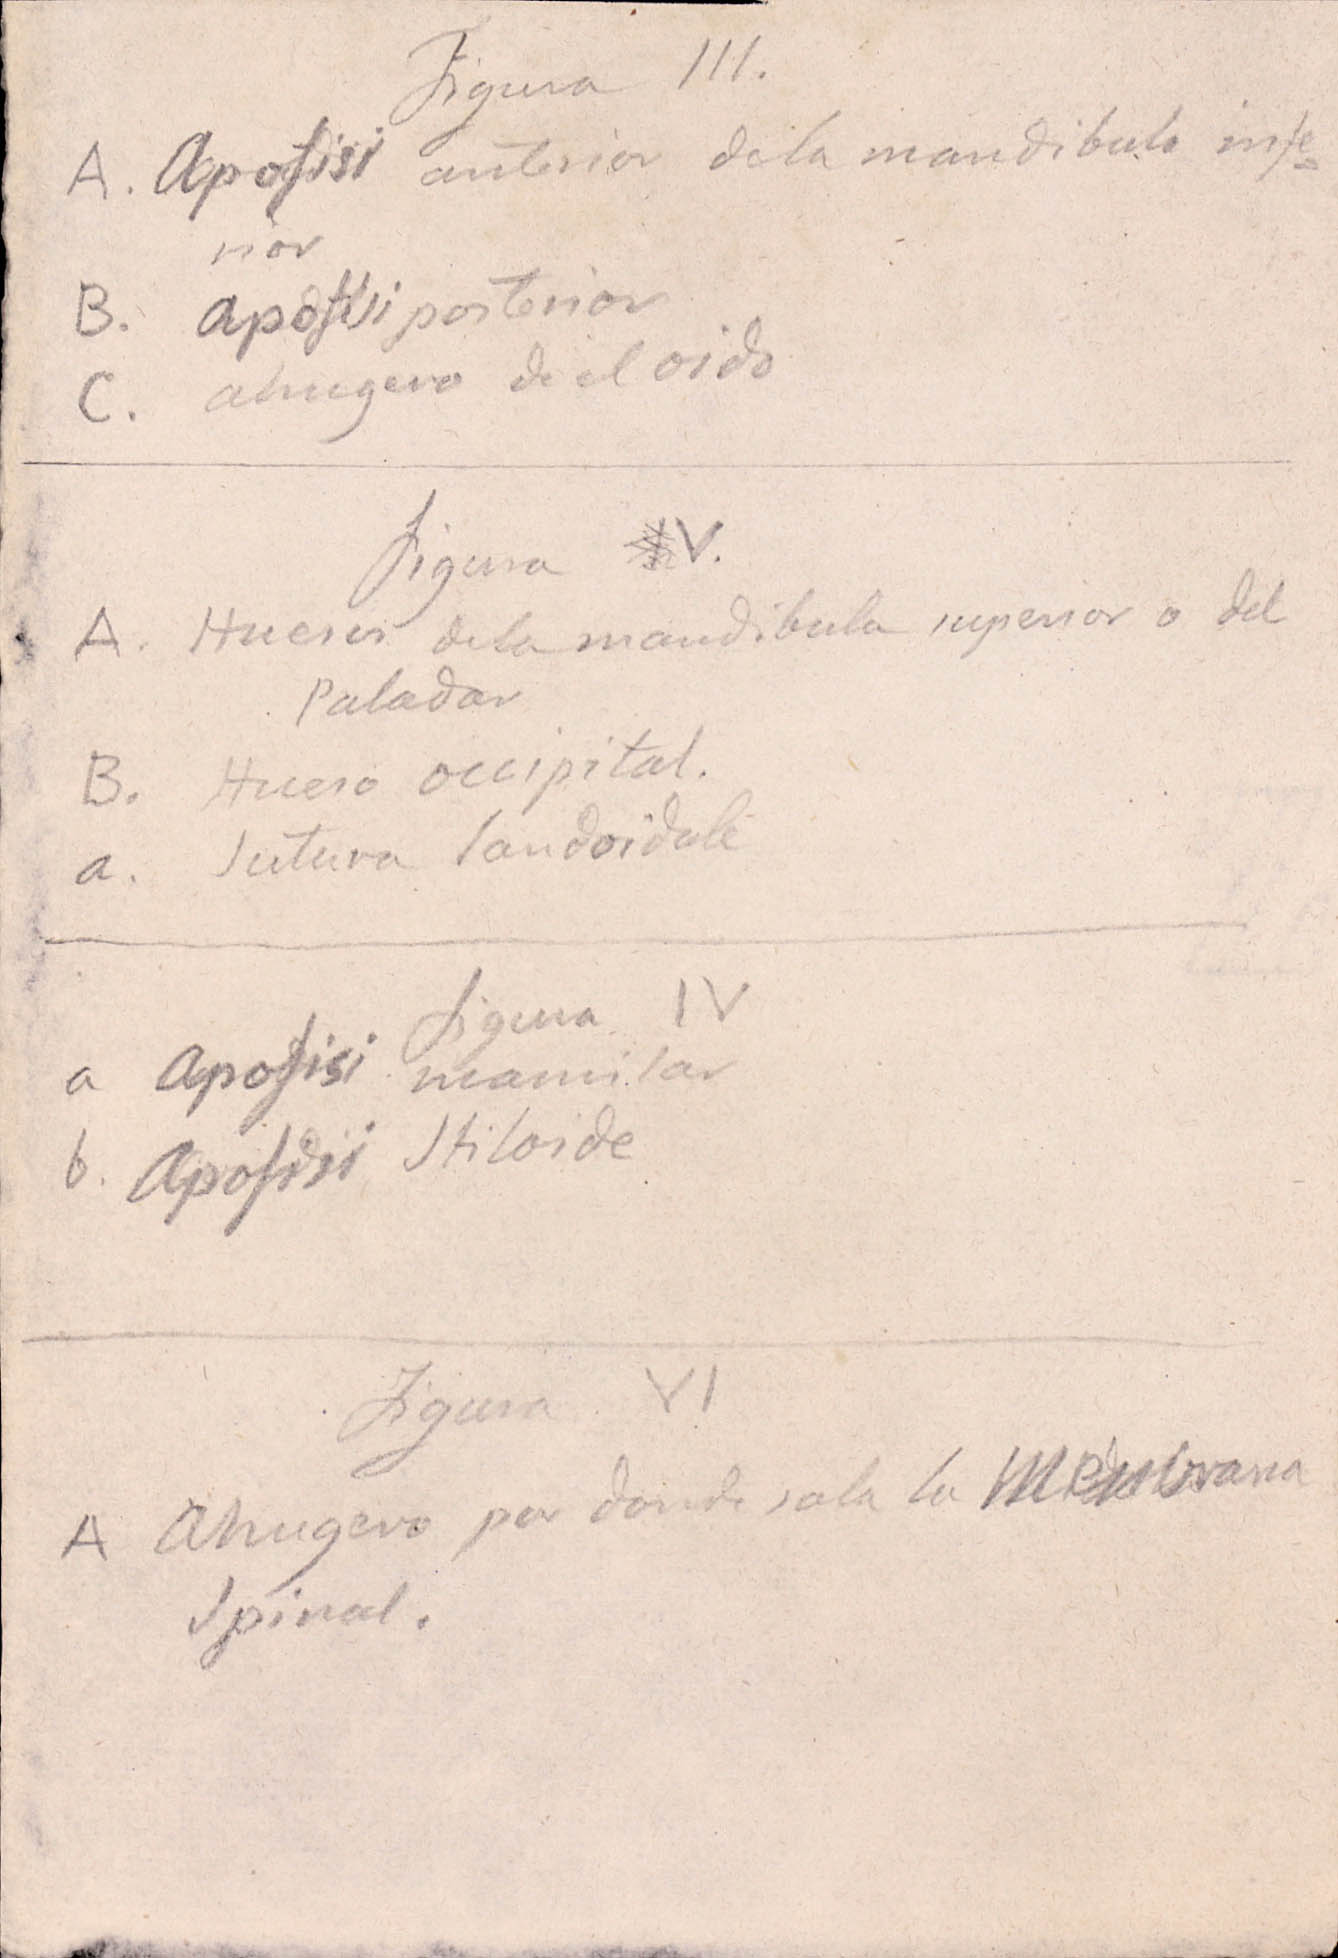 Figura III.
A. Apofisi anterior dela mandibula infe=
rior
B. apofisi posterior
C. ahugero de el oido
Figura V.
A. Huesos dela mandibula superior o del
Paladar
B. Hueso occipital.
a. Sutura landoidale
figura IV
a Apofisi mamilar
b. Apofisi Stiloide
Figura VI
A Ahugero por donde sale la Membrana
Spinal.